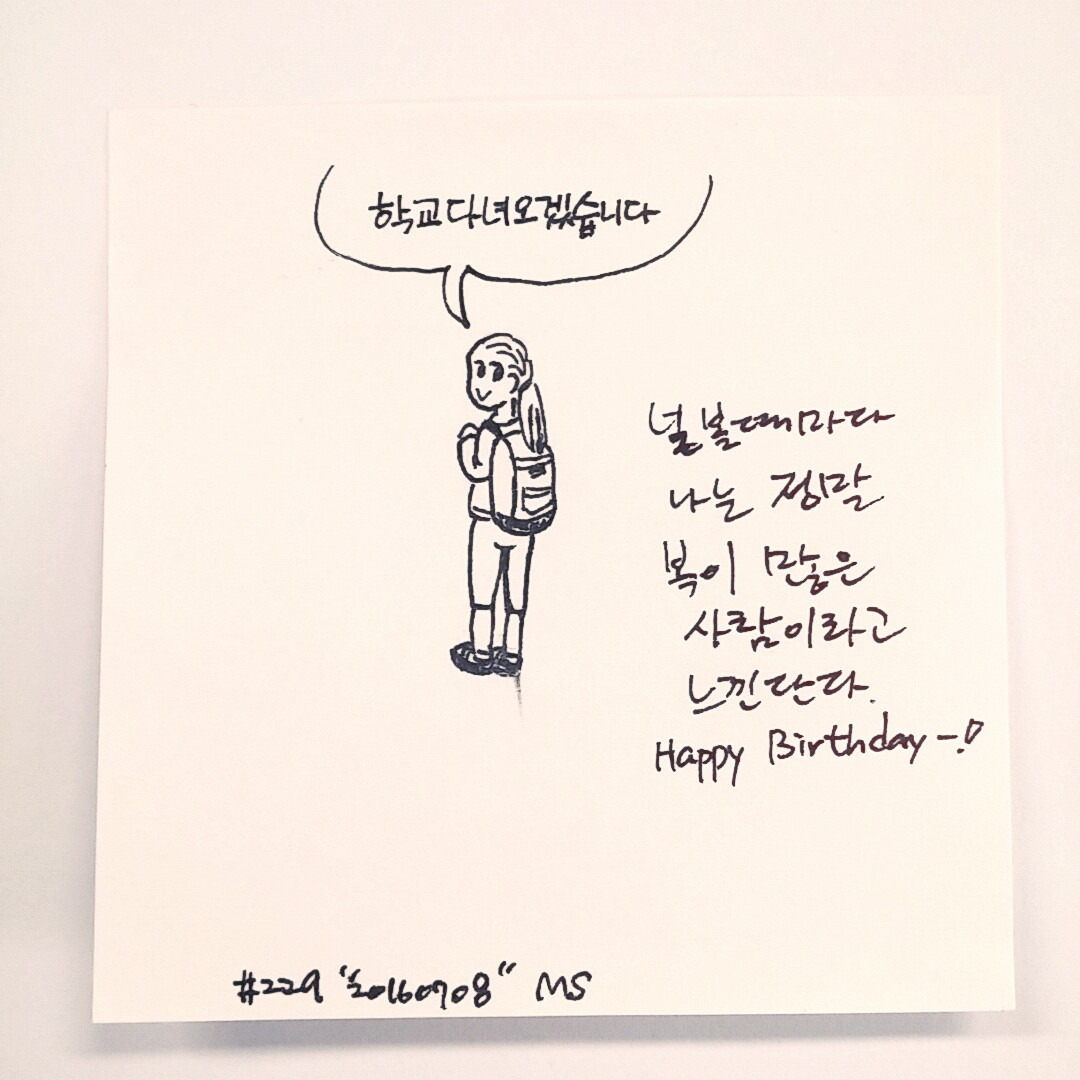 학교다녀오겠습니다
널 볼때마다
나는 정말
복이 많은
사람이라고
느낀단다.
Happy Birthday-!
#229 "20160708" MS